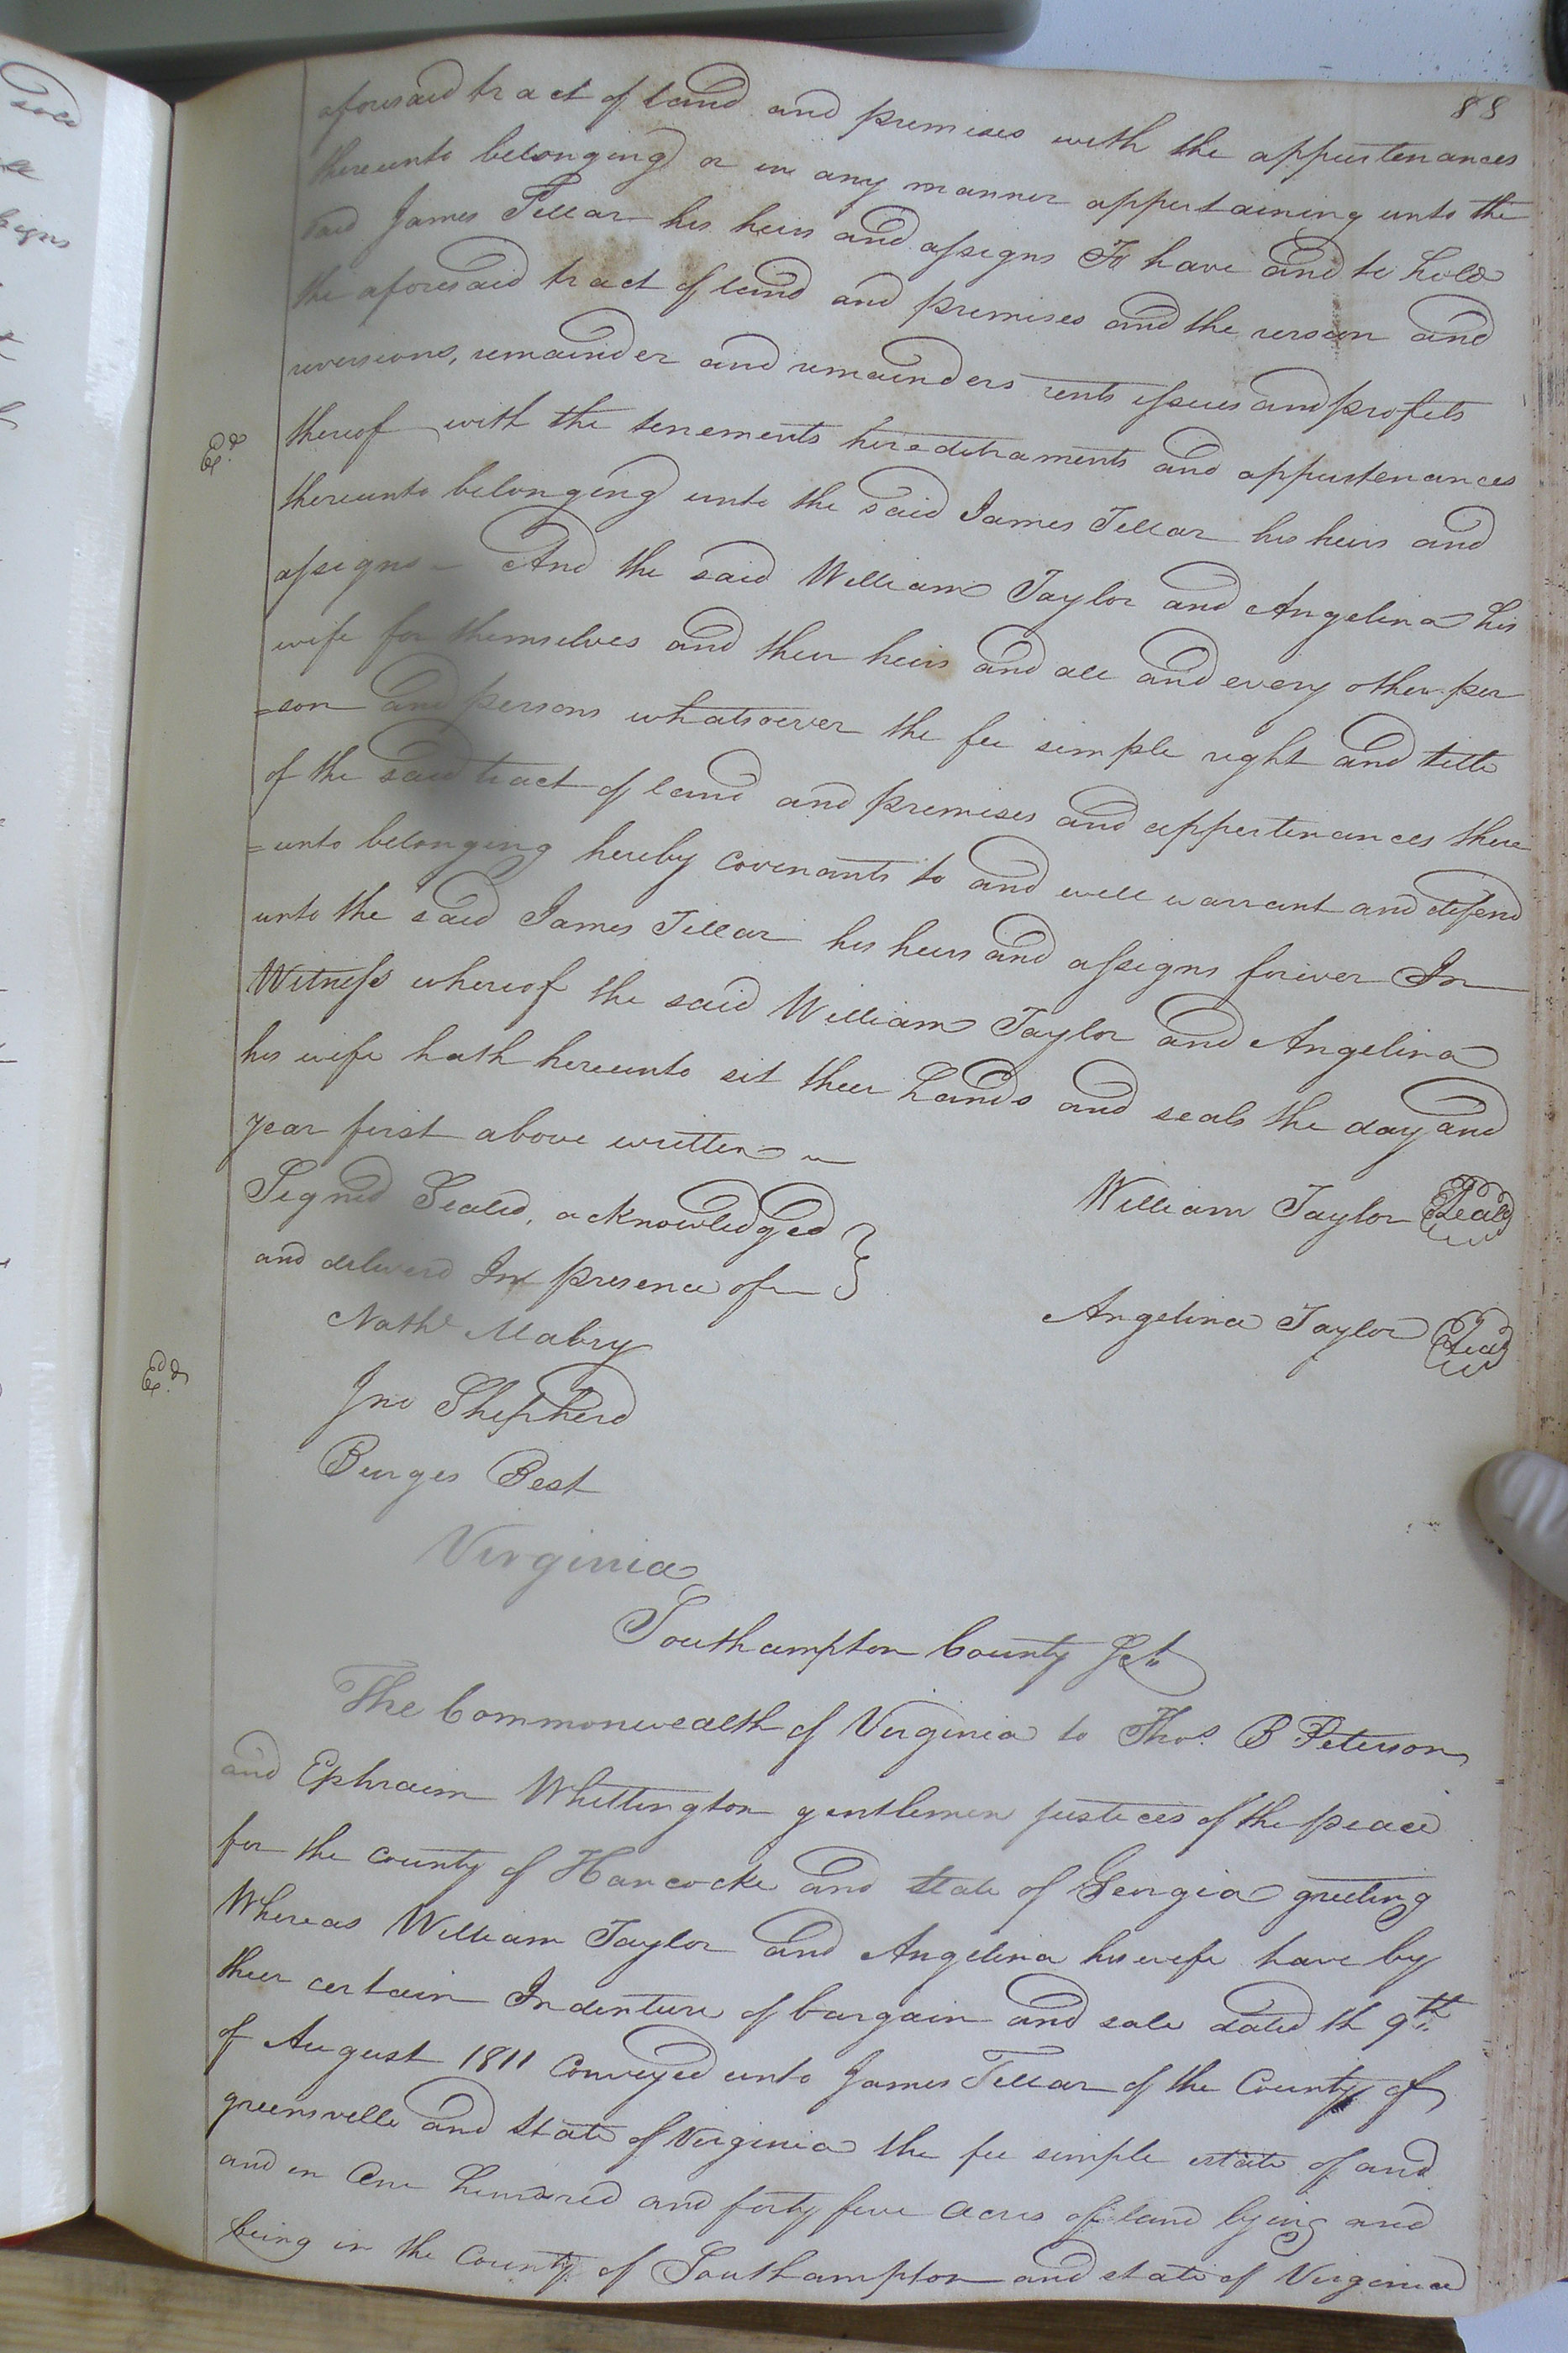 88
aforesaid tract of land and premises with the appurtenances
thereunto belonging or in any manner appertaining unto the
said James Tillar his heirs and assigns To have and to hold
the aforesaid tract of land and premises and the version and
reversions, remainder and remainders rents issues and profits
thereof with the tenements hereditaments and appurtenances
thereunto belonging unto the said James Tillar his heirs and
assigns – And the said William Taylor and Angelina his
wife for themselves and their heirs and all and every other per
=son and persons whatsoever the fee simple right and title
of the said tract of land and premises and appertenances there
=unto belonging hereby covenants to and will warrant and defend
unto the said James Tillar his heirs and assigns forever In
Witness whereof the said William Taylor and Angelina
his wife hath hereunto set their hands and seals the day and
year first above written –
Signed Sealed, acknowledged
and deliverd In presence of
William Taylor Seal
Angelina Taylor Seal
Nathl Mabry
Jno Shepherd
Burges Best
Virginia
Southampton County Sct
The Commonwealth of Virginia to Thos. B Peterson
and Ephraim Whittington gentlemen justices of the peace
for the county of Hancocke and state of Georgia greeting
Whereas William Taylor and Angelina his wife have by
their certain Indenture of bargain and sale dated th 9th
of August 1811 Conveyed unto James Tillar of the County of
greensville and state of Virginia the fee simple estate of and
and in One hundred and forty five acres of land lying and
being in the County of Southampton and state of Virginia